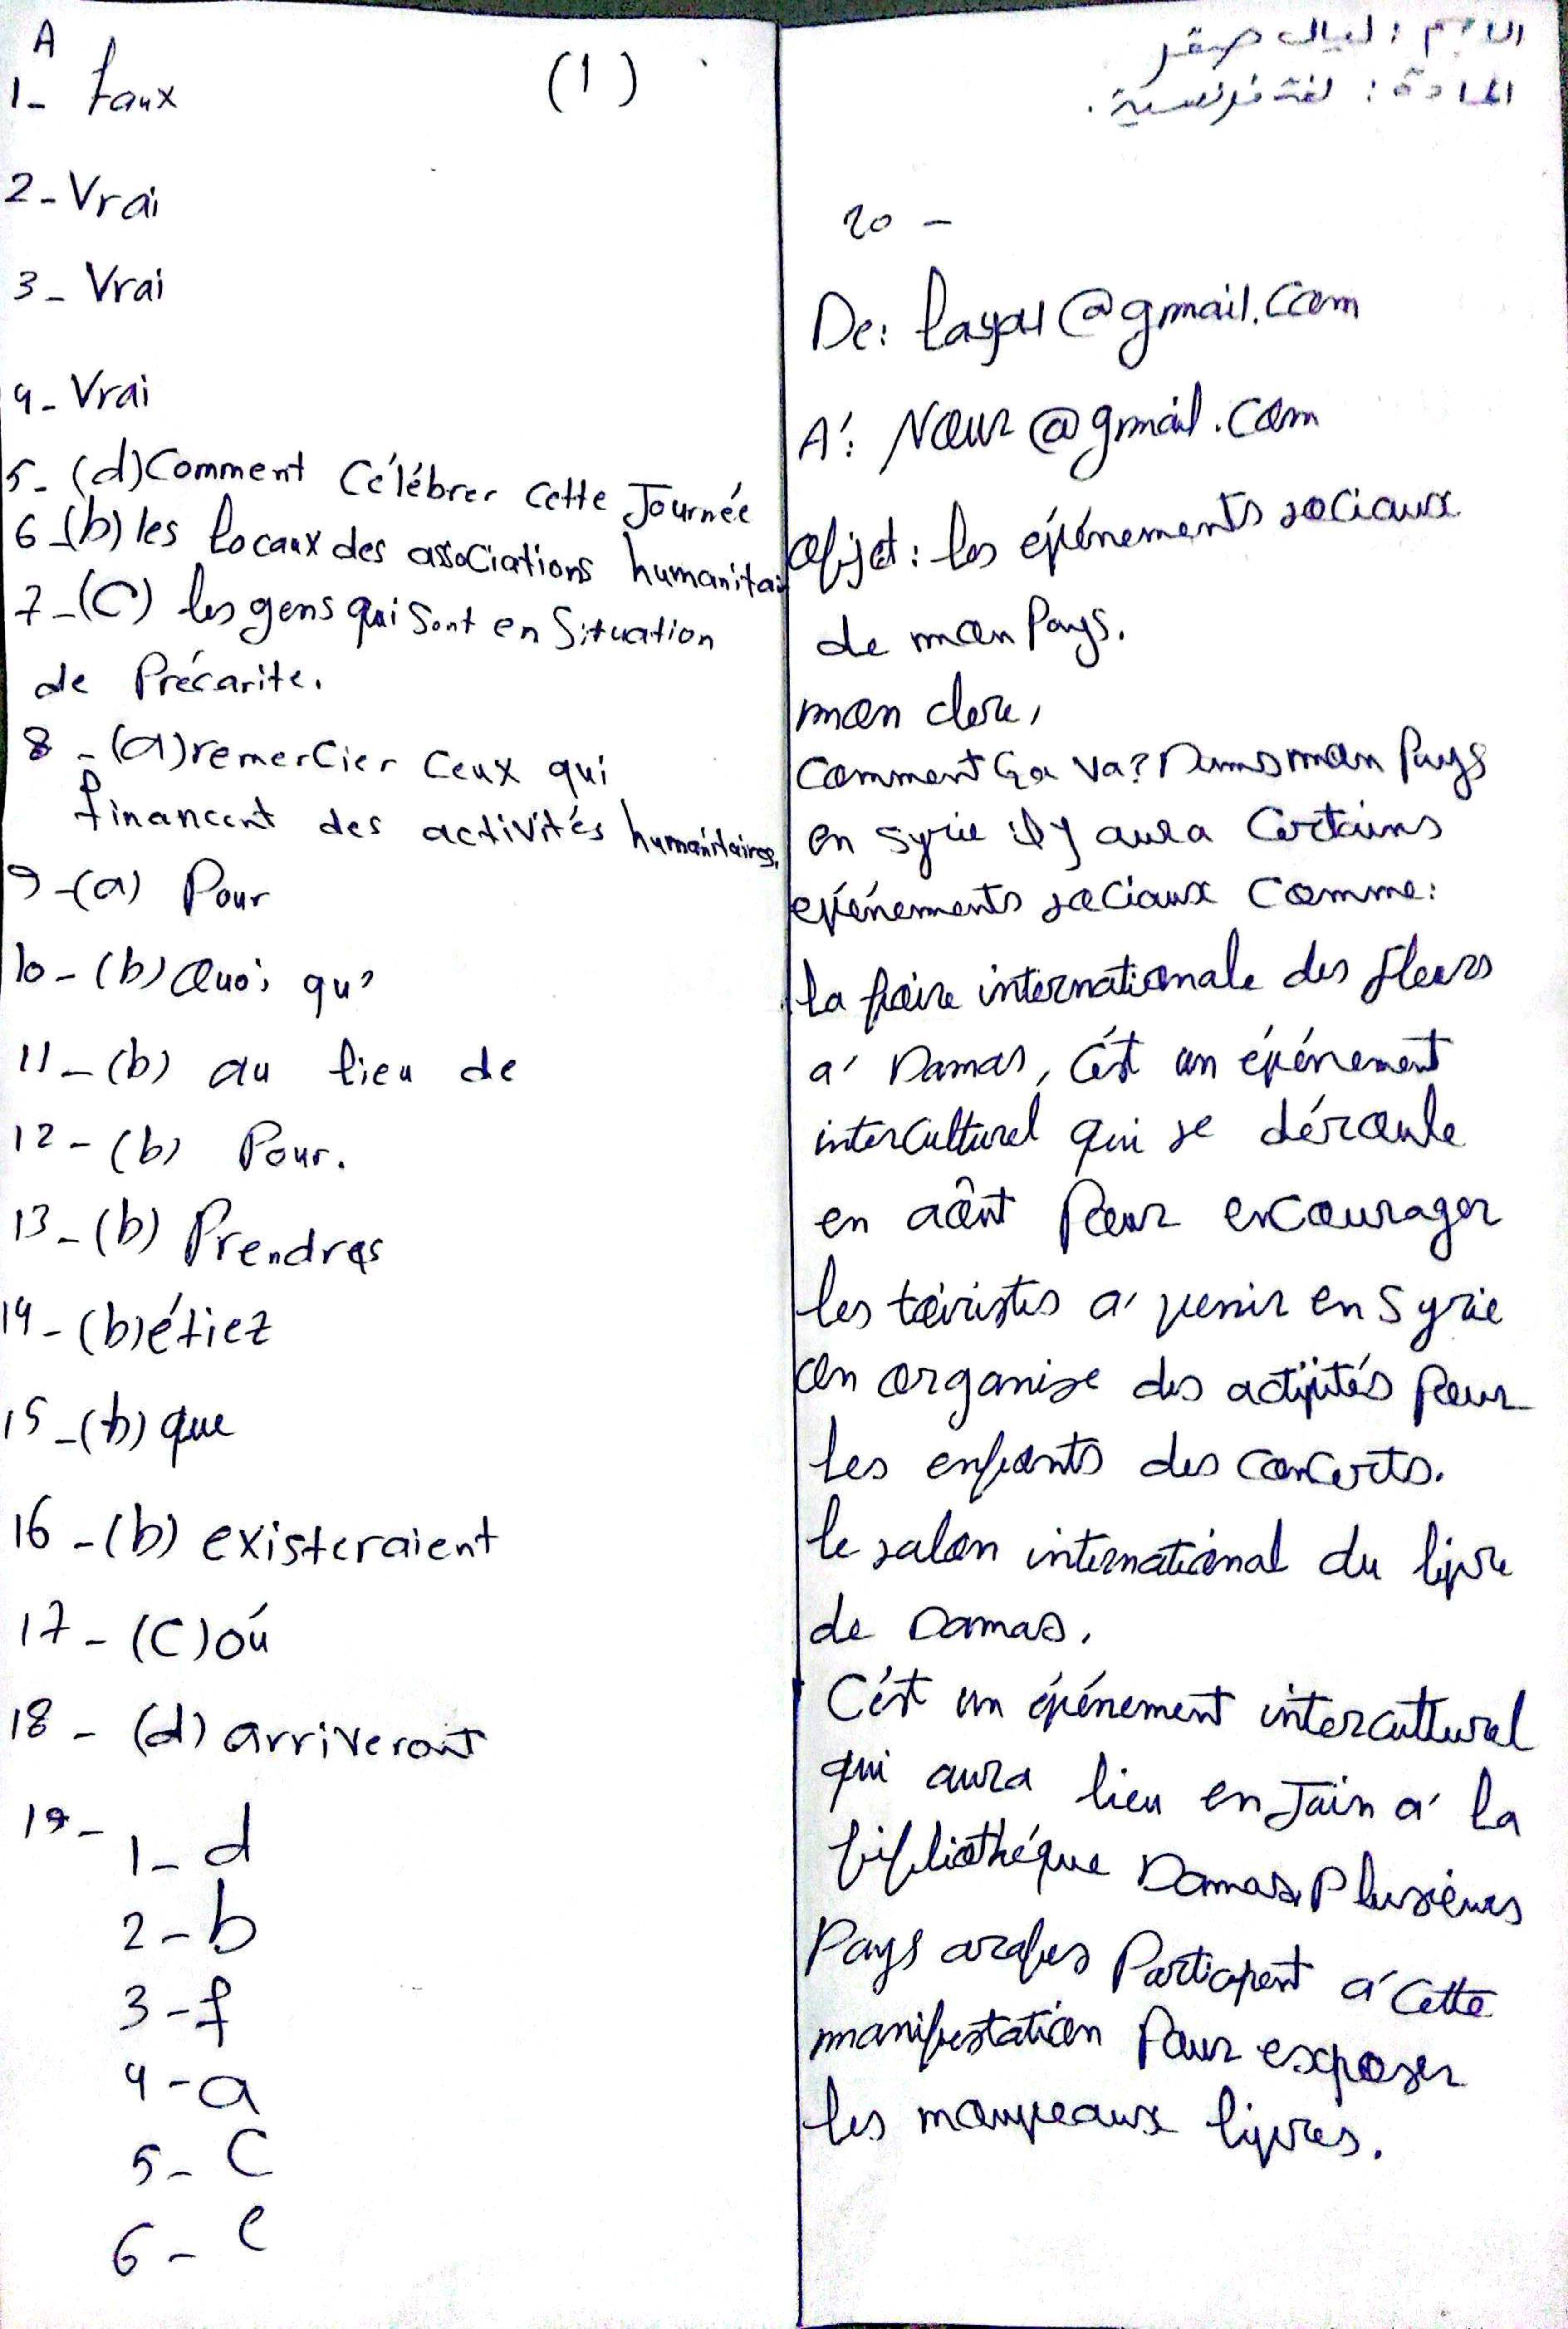 A
(1)
1- faux
2- Vrai
3- Vrai
4- Vrai
5- (d) Comment Célébrer cette Journée
6-(b) les locaux des associations humanitai
7-(C) les gens qui Sont en Situation
de Précarite.
8-(a) remercier Ceux qui
financent des activités humanitaires.
9-(a) Pour
10-(b) Quoi qu'
11-(b) au lieu de
12-(b) Pour.
13-(b) Prendras
14-(b) étiez
15-(b) que
16-(b) existeraient
17-(C) oú
18- (d) arriveront
19-
1- d
2- b
3- f
4- a
5- C
6- e
الاسم : ليال صقر
المادة : لغة فرنسية .
20 -
De: layal@gmail.com
A': Nour@gmail.com
objet: les événements sociaux
de mon Pays.
mon chere,
Comment Ça va? Dans mon Pays
en Syrie il y aura Certains
evénements sociaux Comme:
la foire internationale des fleurs
a' Damas, C'est un événement
interculturel qui se déroule
en août Pour encourager
les touristes a' venir en Syrie
on organise des activités Pour
les enfants des concerts.
le salon international du livre
de Damas.
C'est un événement interculturel
qui aura lieu en Jain a' la
bibliothéque Damas. Plusieurs
Pays arabes Particpent a' Cette
manifestation Pour exposer
les nouveaux livres.